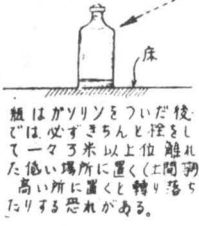 床
瓶はガソリンをついだ後
では必ずきちんと栓をし
て一々3米以上位離れ
た低い場所に置く(土間等
高い所に置くと轉り落ち
たりする恐れがある。